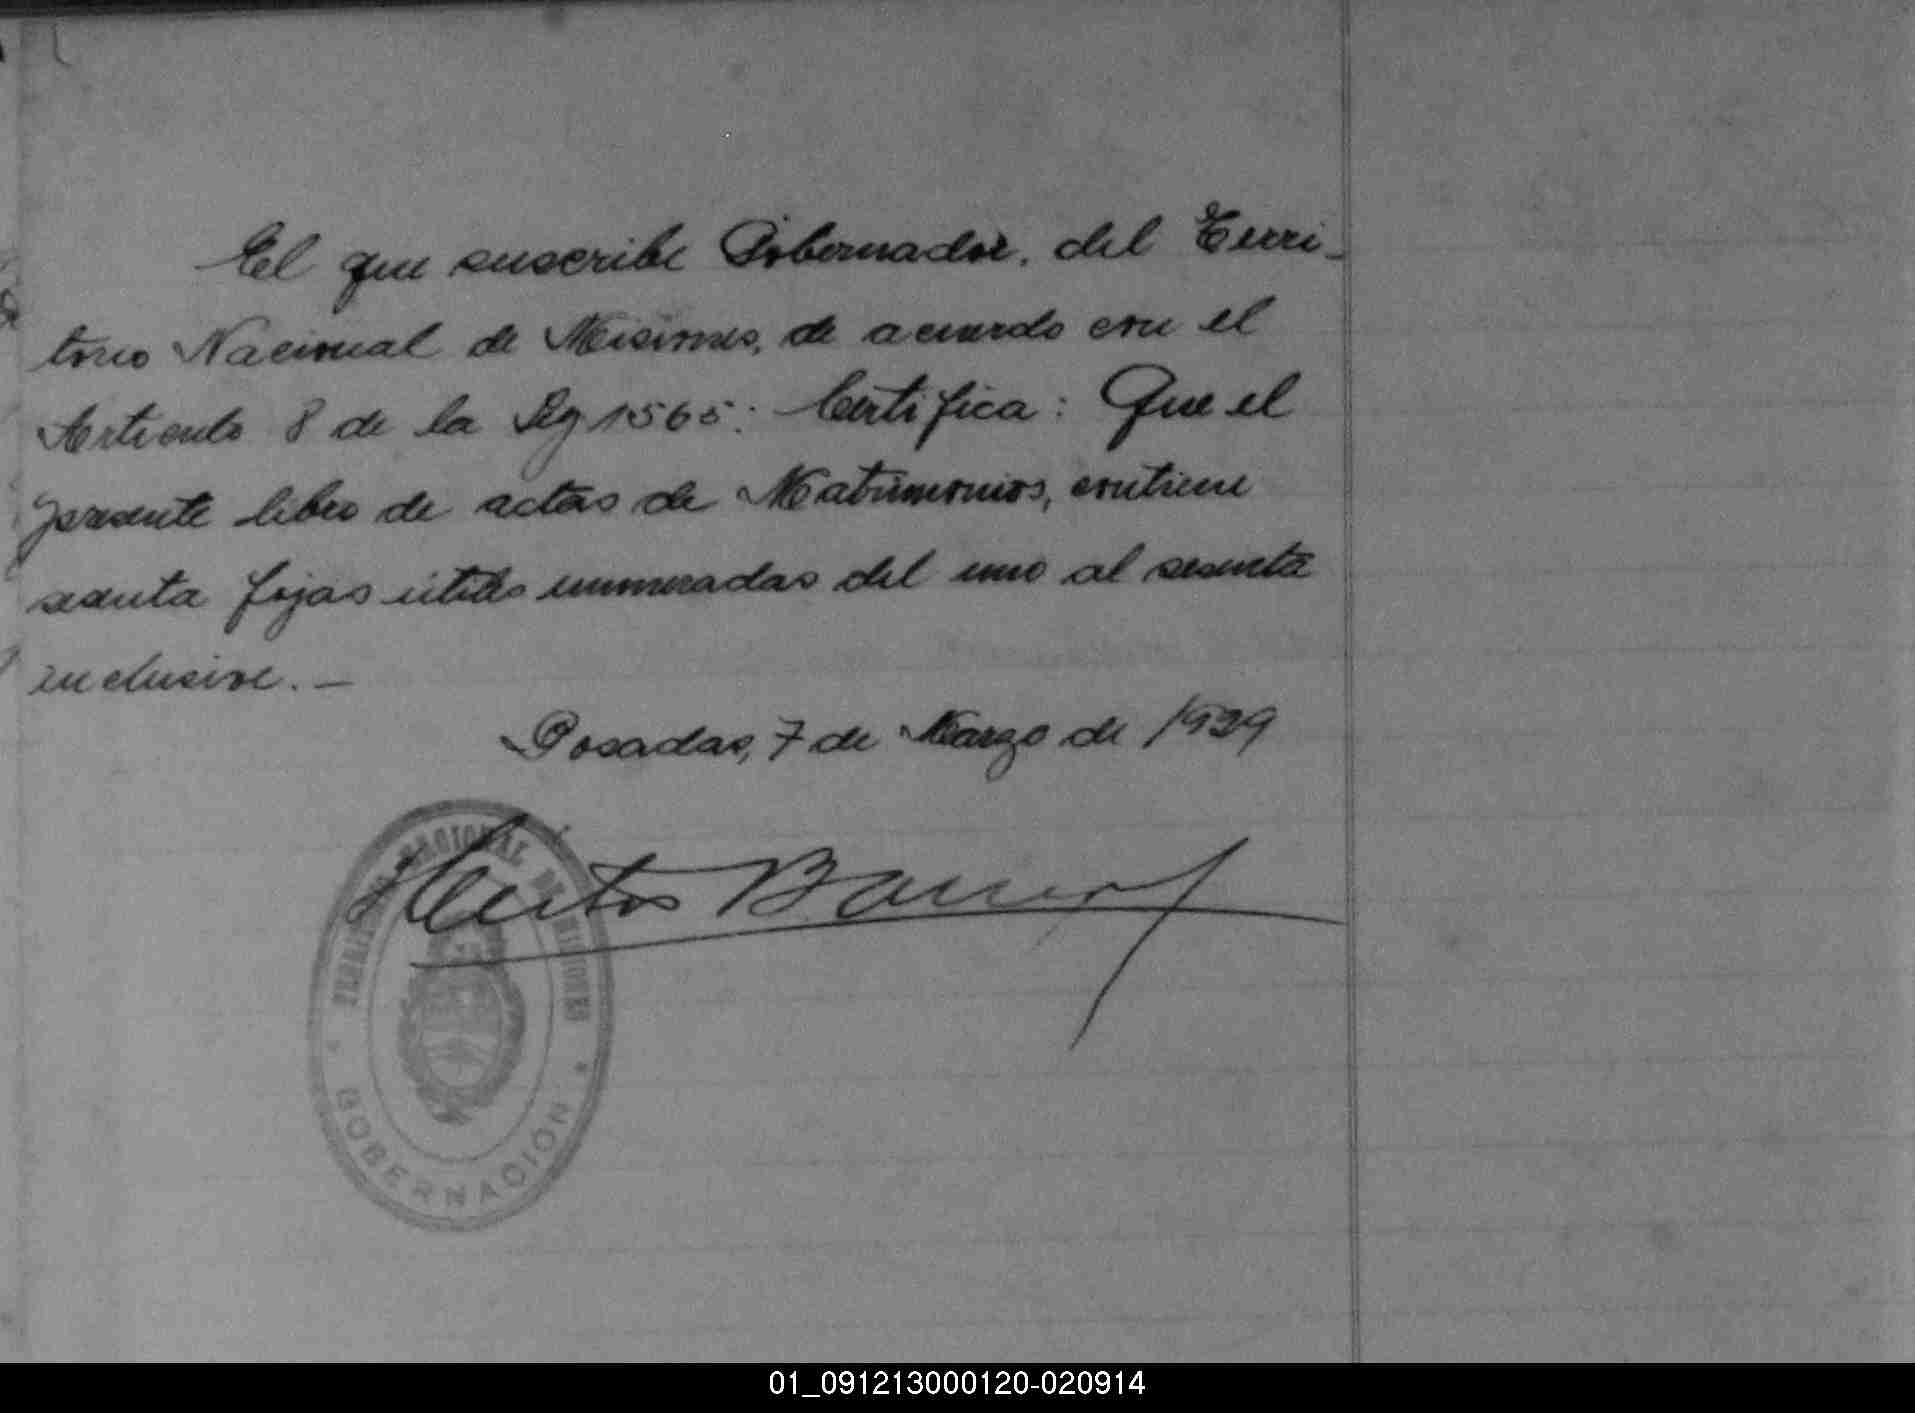 El que suscribe Gobernador, del Terri-
torio Nacional de Misiones, de acuerdo con el
Articulo 8 de la Ley 1565: Certifica: Que el
presente libro de actas de Matrimonios, contiene
sesenta fojas útiles enumeradas del uno al sesenta
inclusive. —
Posadas, 7 de Marzo de 1929
NACIONAL DE MISIONES
GOBERNACIÓN
01_091213000120-020914